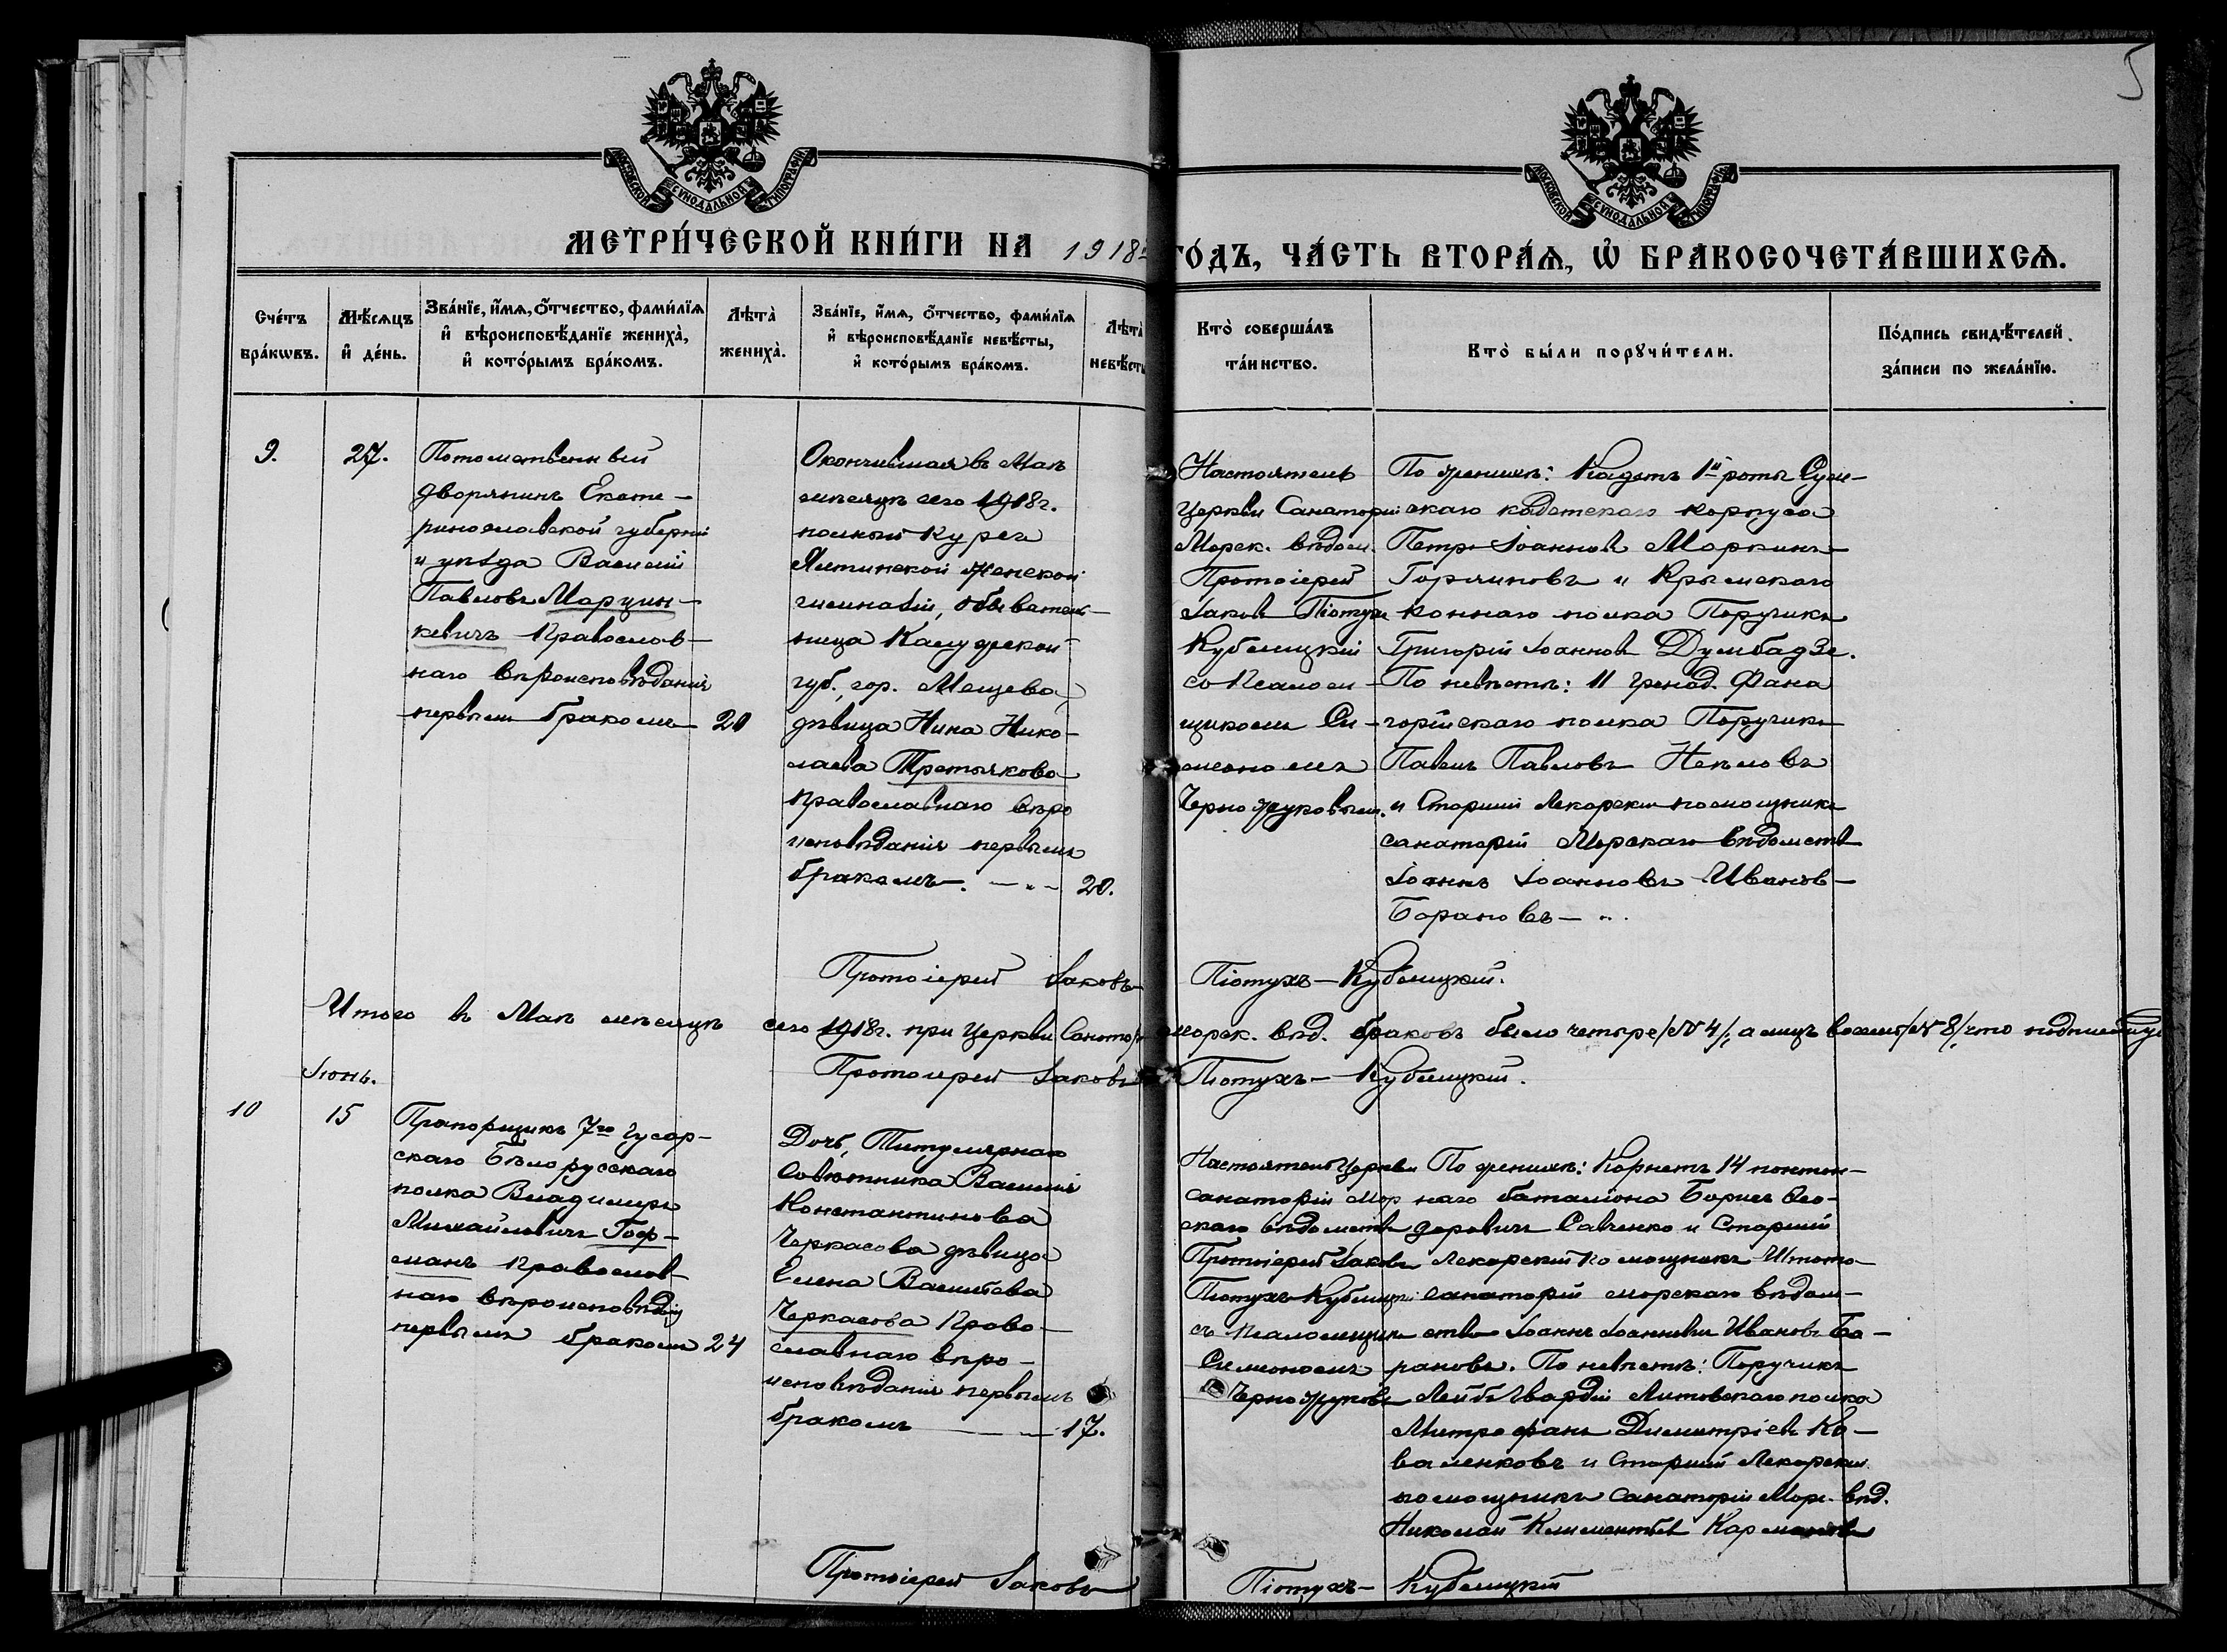 5
МОСКОВСКОЙ СѴНОДАЛЬНОЙ ТИПОГРАФІИ
МОСКОВСКОЙ СѴНОДАЛЬНОЙ ТИПОГРАФІИ
МЕТРИ́ЧЕСКОЙ КНИ́ГИ НА 1918й ГО́ДЪ, ЧА́СТЬ ВТОРА́Ѧ, Ѽ БРАКОСОЧЕТА́ВШИХСѦ.
Сче́тъ
бра́кѡвъ.
Мѣ́сѧцъ
и҆ де́нь.
Зва́нїе, и҆́мѧ, ѻ҆́тчество, фами́лїѧ
и҆ вѣроисповѣ́данїе жениха̀,
и҆ кото́рымъ бра́комъ.
Лѣта̀
жениха̀.
Зва́нїе, и҆́мѧ, ѻ҆́тчество, фами́лїѧ
и҆ вѣроисповѣ́данїе невѣ́сты,
и҆ кото́рымъ бра́комъ.
Лѣта̀
невѣ́сты
Кто̀ соверша́лъ
та́инство.
Кто̀ бы́ли порꙋчи́тели.
По́дпись свидѣ́телей
за́писи по жела́нїю.
9.
27.
Потомственный
дворянинъ Екате-
ринославской губерніи
и уѣзда Василій
Павловъ Марцин-
кевичъ Православ-
наго вѣроисповѣданія
первымъ бракомъ
20
Окончившая въ Маѣ
мѣсяцѣ сего 1918г.
полный курсъ
Ялтинской женской
гимназіи, обыватель-
ница Калужской
губ., гор. Мещева
дѣвица Нина Нико-
лаева Третьякова
православнаго вѣро
исповѣданія первымъ
бракомъ. — „ —
20.
Настоятель
Церкви Санаторій
Морск. вѣдом.
Протоіерей
Іаковъ Піотухъ
Кублицкій
со Псаломщ-
щикомъ Си-
меономъ
Черножуковымъ.
По женихѣ: Кадетъ 1й роты Сум-
скаго кадетскаго корпуса
Петръ Іоанновъ Маркинъ-
Горяиновъ и Крымскаго
коннаго полка Поручикъ
Григорій Іоанновъ Думбадзе.
По невѣстѣ: 11 Гренад. Фана
горійскаго полка Поручикъ
Павелъ Павловъ Неѣловъ
и Старшій Лекарскій помощникъ
санаторій Морскаго вѣдомств
Іоаннъ Іоанновъ Иванов-
Барановъ — „ .
Протоіерей Іаковъ Піотухъ-Кублицкій.
Итого въ Маѣ мѣсяцѣ сего 1918г. при Церкви Санатор. морск. вѣд. браковъ было четыре /№4/, а лицъ восемь /№8/, что подписую
Протоіерей Іаковъ Піотухъ-Кублицкій.
Іюнь.
10
15
Прапорщикъ 7го Гусар-
скаго Бѣлорусскаго
полка Владимиръ
Михайловичъ Гоф-
манъ Православ-
наго вѣроисповѣданія
первымъ бракомъ
24
Дочь, Титулярнаго
Совѣтника Василія
Константинова
Черкасова дѣвица
Елена Васильева
Черкасова Право-
славнаго вѣро-
исповѣданія первымъ
бракомъ —
17.
Настоятель Церкви
санаторій Мор
скаго вѣдомств
Протоіерей Іаковъ
Піотухъ-Кублицкій
съ Псаломщик
Симеономъ
Черножуков
По женихѣ: Корнетъ 14 понтон-
наго баталіона Борисъ Ѳео-
доровичъ Савченко и Старшій
Лекарскій Помощникъ
санаторій морскаго вѣдом-
ства Іоаннъ Іоанновъ Ивановъ Ба-
рановъ. По невѣстѣ: Поручикъ
Лейбъ Гвардіи Литовскаго полка
Митрофанъ Димитріевъ Ко-
валенковъ и Старшій Лекарскій
помощникъ Санаторій Морс. вѣд.
Николай Климентьев Кармановъ
Протоіерей Іаковъ Піотухъ-Кублицкій